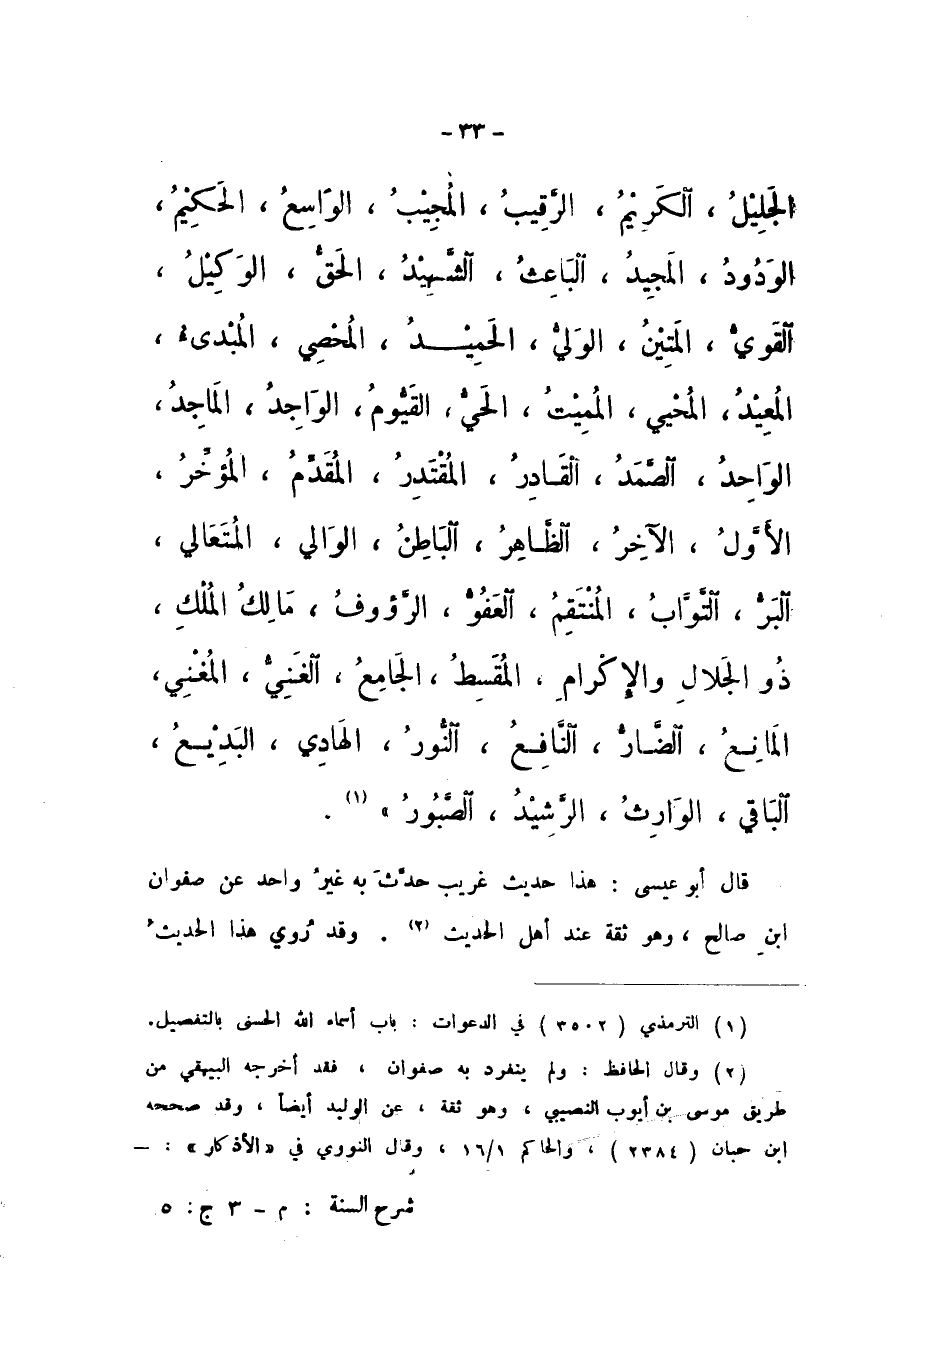 - ٣٣ -
الجَلِيْلُ ، ٱلكَرِيْمُ ، الرَّقِيبُ ، المُجِيْبُ ، الوَاسِعُ ، الحَكِيْمُ ،
الوَدُودُ ، المَجِيدُ ، ٱلبَاعِثُ ، ٱلشَّهِيْدُ ، الحَقُّ ، الوَكِيْلُ ،
ٱلقَوِيُّ ، المَتِيْنُ ، الوَلِيُّ ، الحَمِيْدُ ، المُحْصِي ، المُبْدىءُ ،
المُعِيْدُ ، المُحْيي ، المُمِيْتُ ، الحَيُّ ، القَيُّومُ ، الوَاجِدُ ، المَاجِدُ ،
الوَاحِدُ ، ٱلصَّمَدُ ، ٱلقَادِرُ ، المُقْتَدِرُ ، المُقَدِّمُ ، المُؤخِّرُ ،
الأَوَّلُ ، الآخِرُ ، ٱلظَّاهِرُ ، ٱلبَاطِنُ ، الوَالي ، المُتَعَالي ،
ٱلبَرُّ ، ٱلتَّوَّابُ ، المُنْتَقِمُ ، ٱلعَفُوُّ ، الرَّؤوفُ ، مَالِكُ المُلْكِ ،
ذُو الجَلالِ والإِكْرامِ ، المُقْسِطُ ، الجَامِعُ ، ٱلغَنِيُّ ، المُغْنِي ،
المَانِعُ ، ٱلضَّارُّ ، ٱلنَّافِعُ ، ٱلنُّورُ ، الهَادِي ، البَدِيْعُ ،
ٱلبَاقي ، الوَارِثُ ، الرَّشِيْدُ ، ٱلصَّبُورُ » (١) .
قال أبو عيسى : هذا حديث غريب حدَّثَ به غيرُ واحد عن صفوان
ابنِ صالح ، وهو ثقة عند أهل الحديث (٢) . وقد رُوي هذا الحديثُ
(١) الترمذي ( ٣٥٠٢ ) في الدعوات : باب أسماء الله الحسنى بالتفصيل.
(٢) وقال الحافظ : ولم ينفرد به صفوان ، فقد أخرجه البيهقي من
طريق موسى بن أيوب النصيبي ، وهو ثقة ، عن الوليد أيضاً ، وقد صححه
ابن حبان ( ٢٣٨٤ ) ، والحاكم ١٦/١ ، وقال النووي في «الأذكار» : –
شرح السنة : م - ٣ ج : ٥